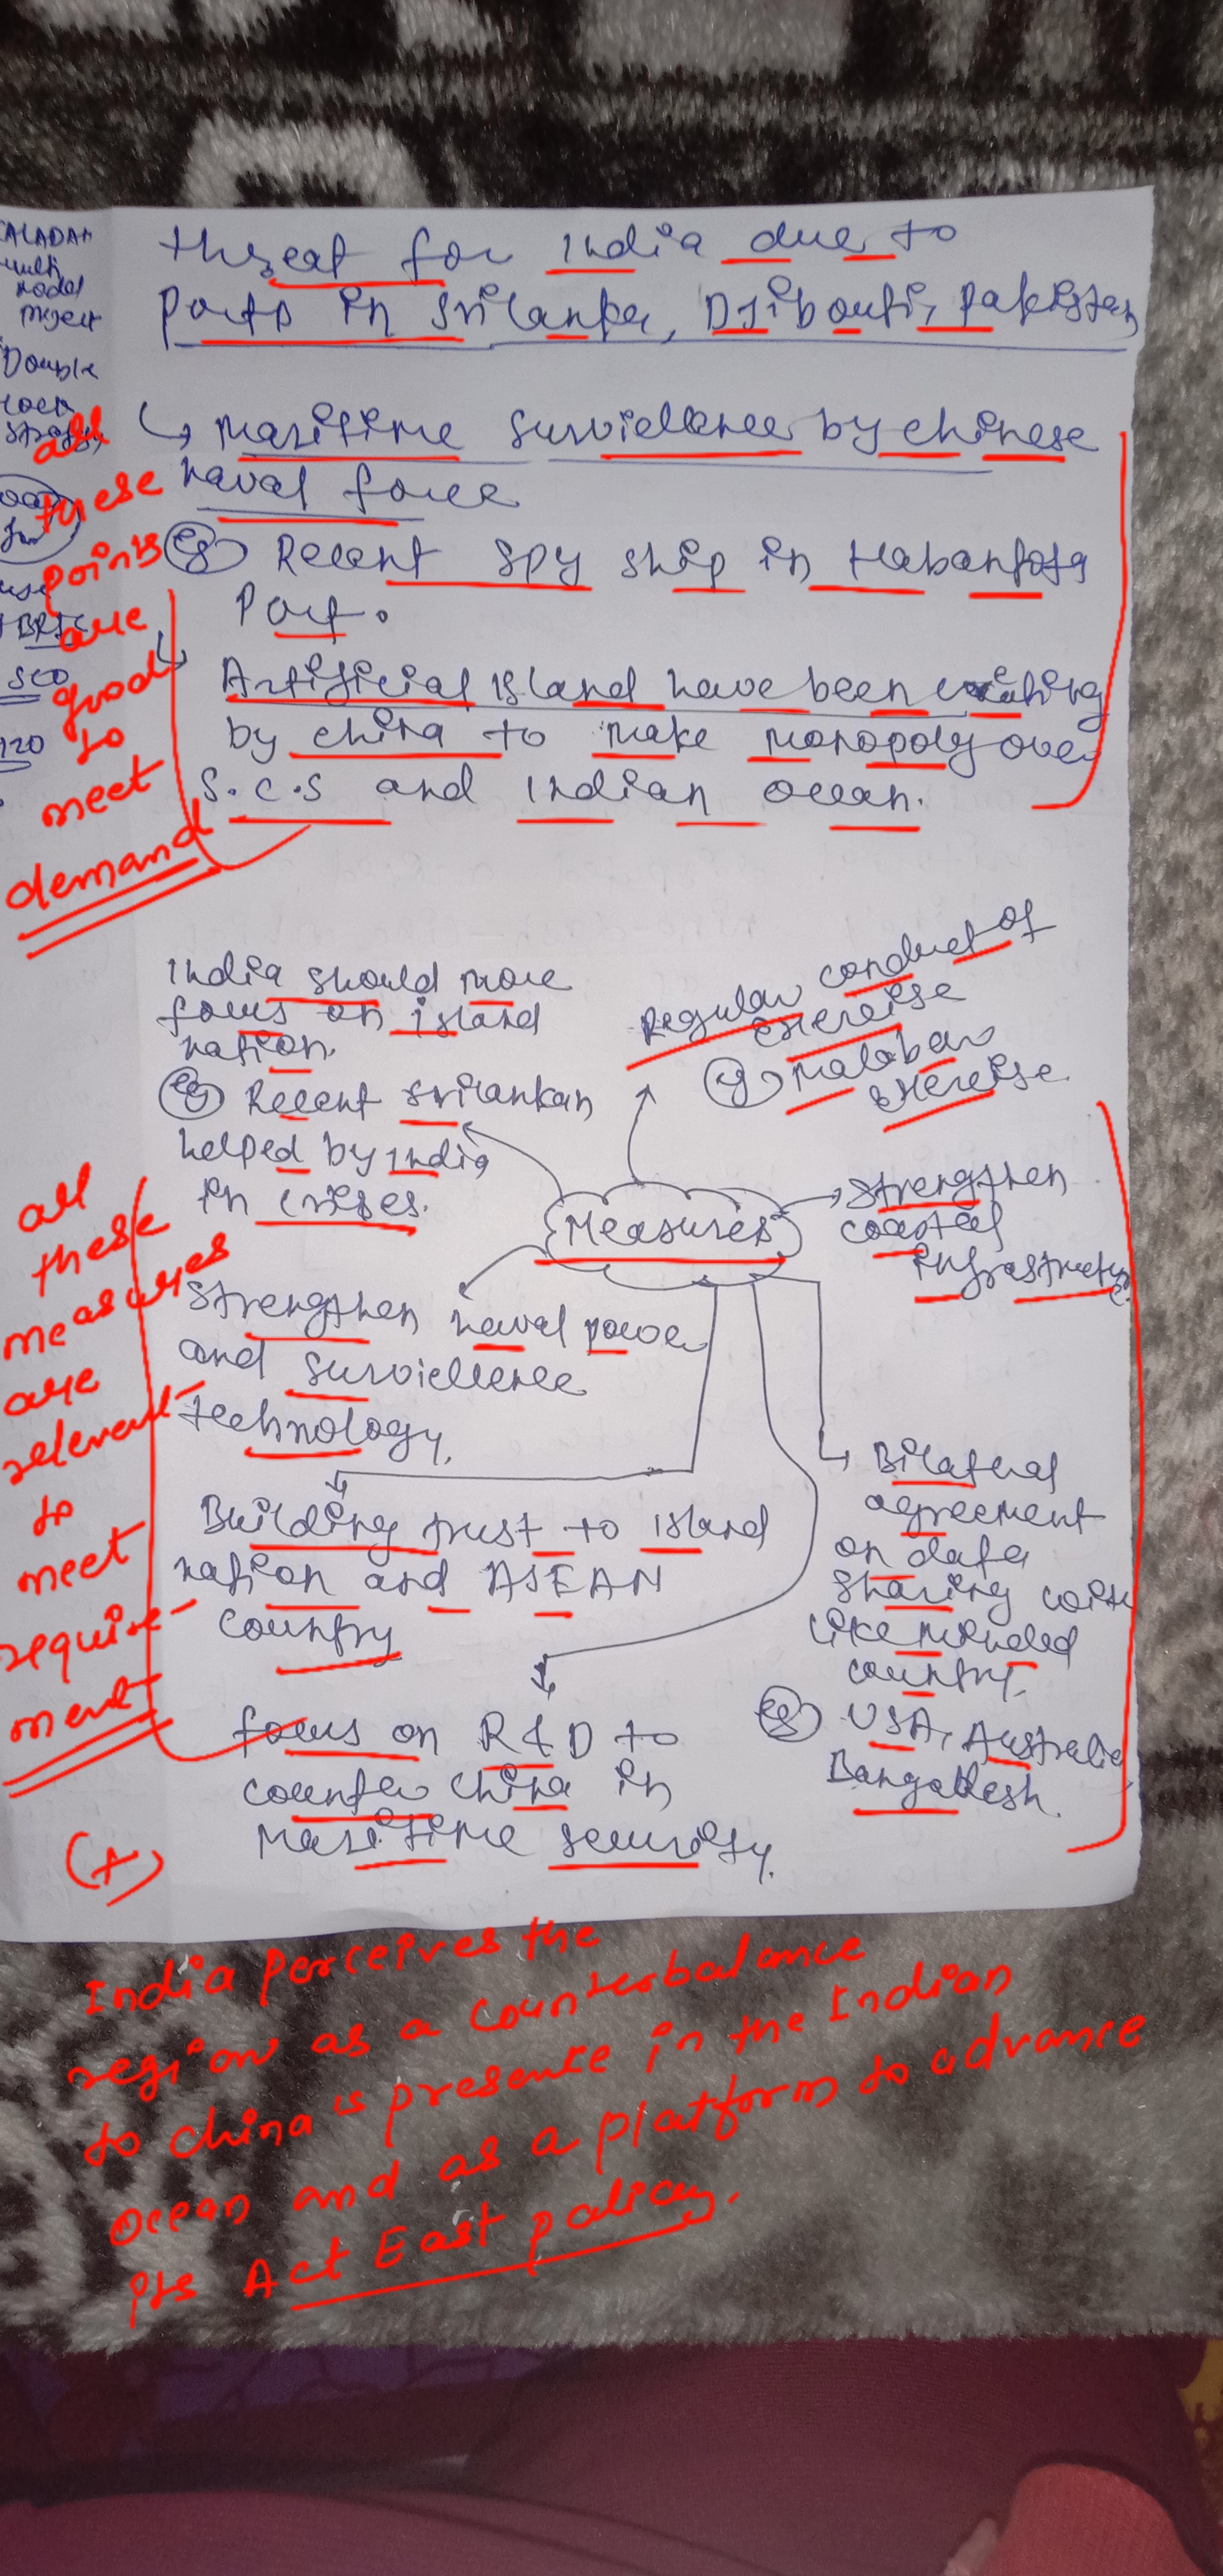 threat for India due to
Ports in Srilanka, Djibouti, Pakistan
↳ Maritime Surviellence by chinese
naval force
eg Recent spy ship in Habantota
Port.
↳ Artificial Island have been creating
by china to make monopoly over
S.C.S and Indian ocean.
ALADAN
multi
modal
Project
Double
SCO
all
these
points
are
good
to
meet
demand
India should more
focus on island
nation.
eg Recent Srilankan
helped by India
in crises.
Regular conduct of
exercise
eg Malabar
exercise.
Measures
Strengthen
coastal
infrastructure.
Strengthen naval power
and surviellence
technology.
Building trust to island
nation and ASEAN
country
focus on R&D to
counter china in
Maritime security.
Bilateral
agreement
on data
sharing with
like minded
country.
eg USA, Australia,
Bangladesh.
all
these
measures
are
relevant
to
meet
require-
ment
(+)
India perceives the
region as a counterbalance
to china's presence in the Indian
Ocean and as a platform to advance
its Act East policy.